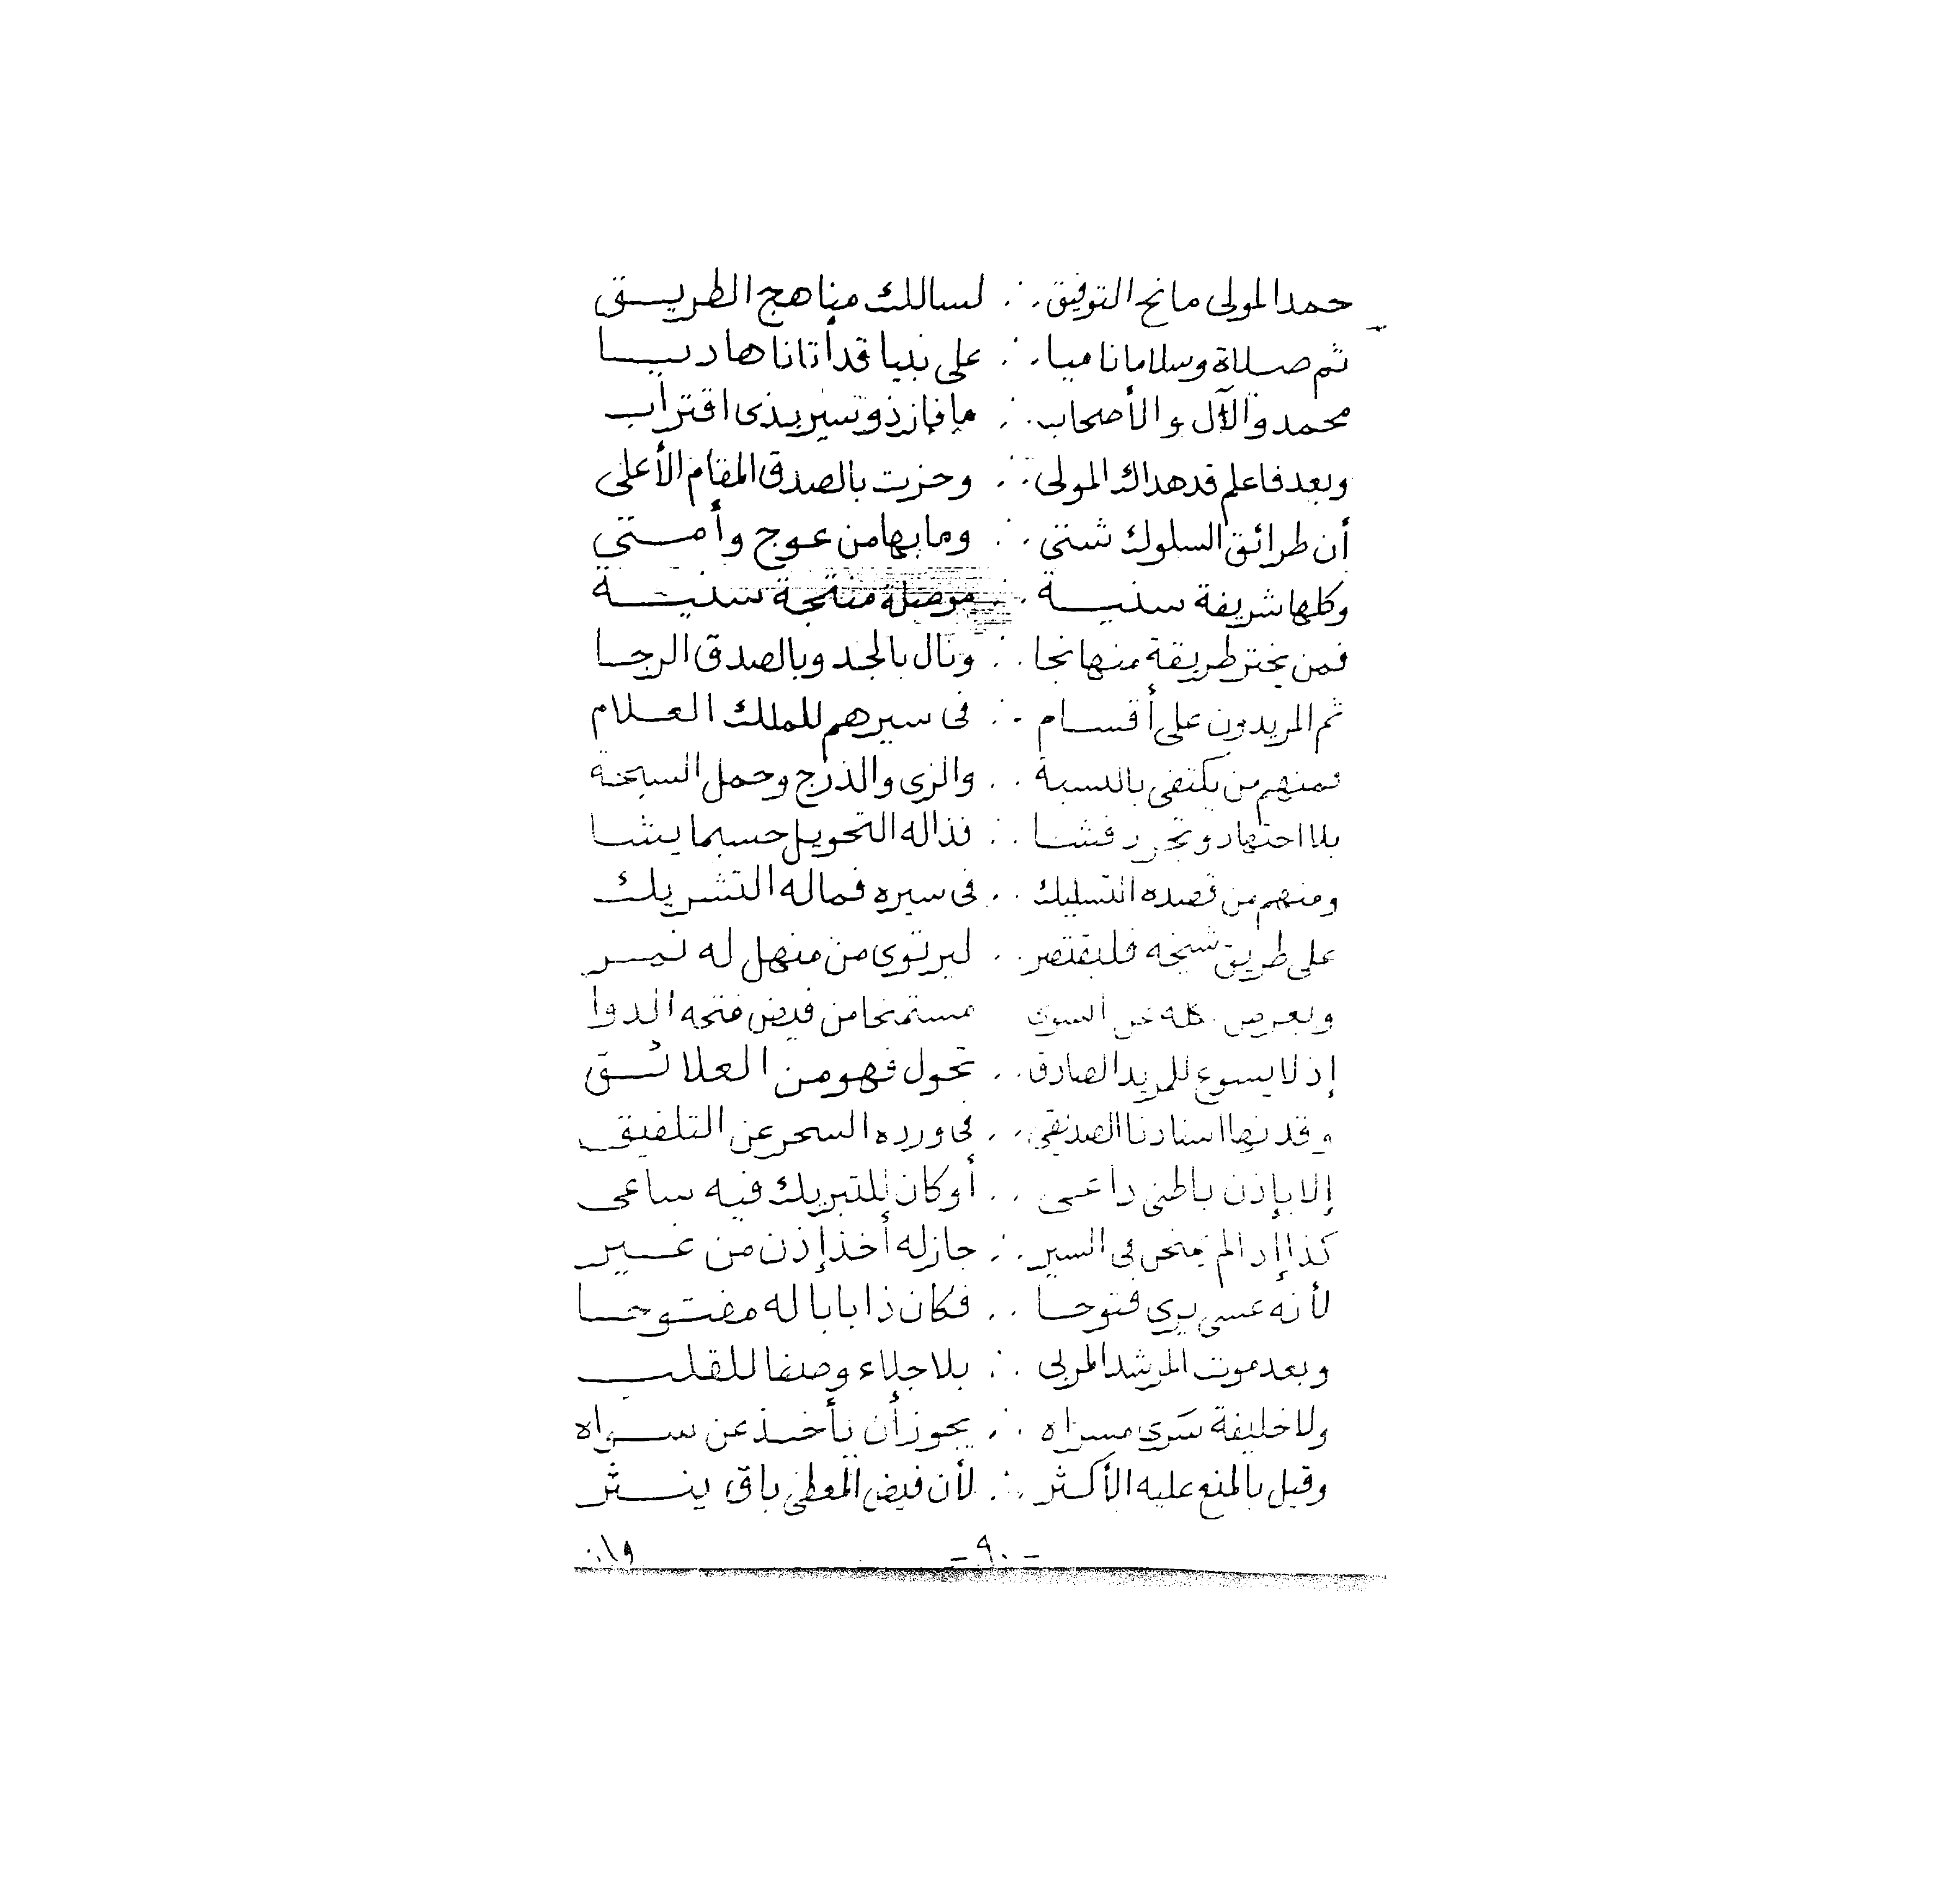 حمدا لمولى مانح التوفيق .∴. لسالك مناهج الطريـق
ثم صلاة وسلاما ناميا .∴. على نبيا قد أتانا هاديـا
محمد والآل والأصحاب .∴. ما فاز ذو سير بذى اقتراب
وبعد فاعلم قد هداك المولى .∴. وحزت بالصدق المقام الأعلى
أن طرائق السلوك شتى .∴. وما بها من عوج وأمـتى
وكلها شريفة سنيـة .∴. موصلة منتجة سنيـة
فمن يختر طريقة منها نجا .∴. ونال بالجد وبالصدق الرجـا
ثم المريدون على أقسـام .∴. فى سيرهم للملك العـلام
فمنهم من يكتفى بالنسبة .∴. والزى والدرج وحمل السبحة
بلا اجتهاد وتحرر فشـا .∴. فذا له التحويل حسبما يشـا
ومنهم من قصده التسليك .∴. فى سيره فماله التشريك
على طريق شيخه فليقتصر .∴. ليرتوى من منهل له نمـر
كله عن السوى مستمنحا من فيض فتحه الدوا
إذ لا يسوغ للمريد الصادق .∴. تحول فهو من العلائـق
وقد نهى استاذنا الصديقى .∴. فى ورده السحر عن التلفيق
إلا بإذن باطنى داعـى .∴. أو كان للتبريك فيه ساعى
كذا إذا لم ينتج فى السير .∴. جاز له أخذ إذن من غـير
لأنه عسى يرى فتوحـا .∴. فكان ذا بابا له مفتوحـا
وبعد موت المرشد المربى .∴. بلا جلاء وصفا للقلب
ولا خليفة سَرى مسراه .∴. يجوز أن يأخذ عن سـواه
وقيل بالمنع عليه الأكثر .∴. لأن فيض المعطى باق ينـثر
- ٩٠ -
وان